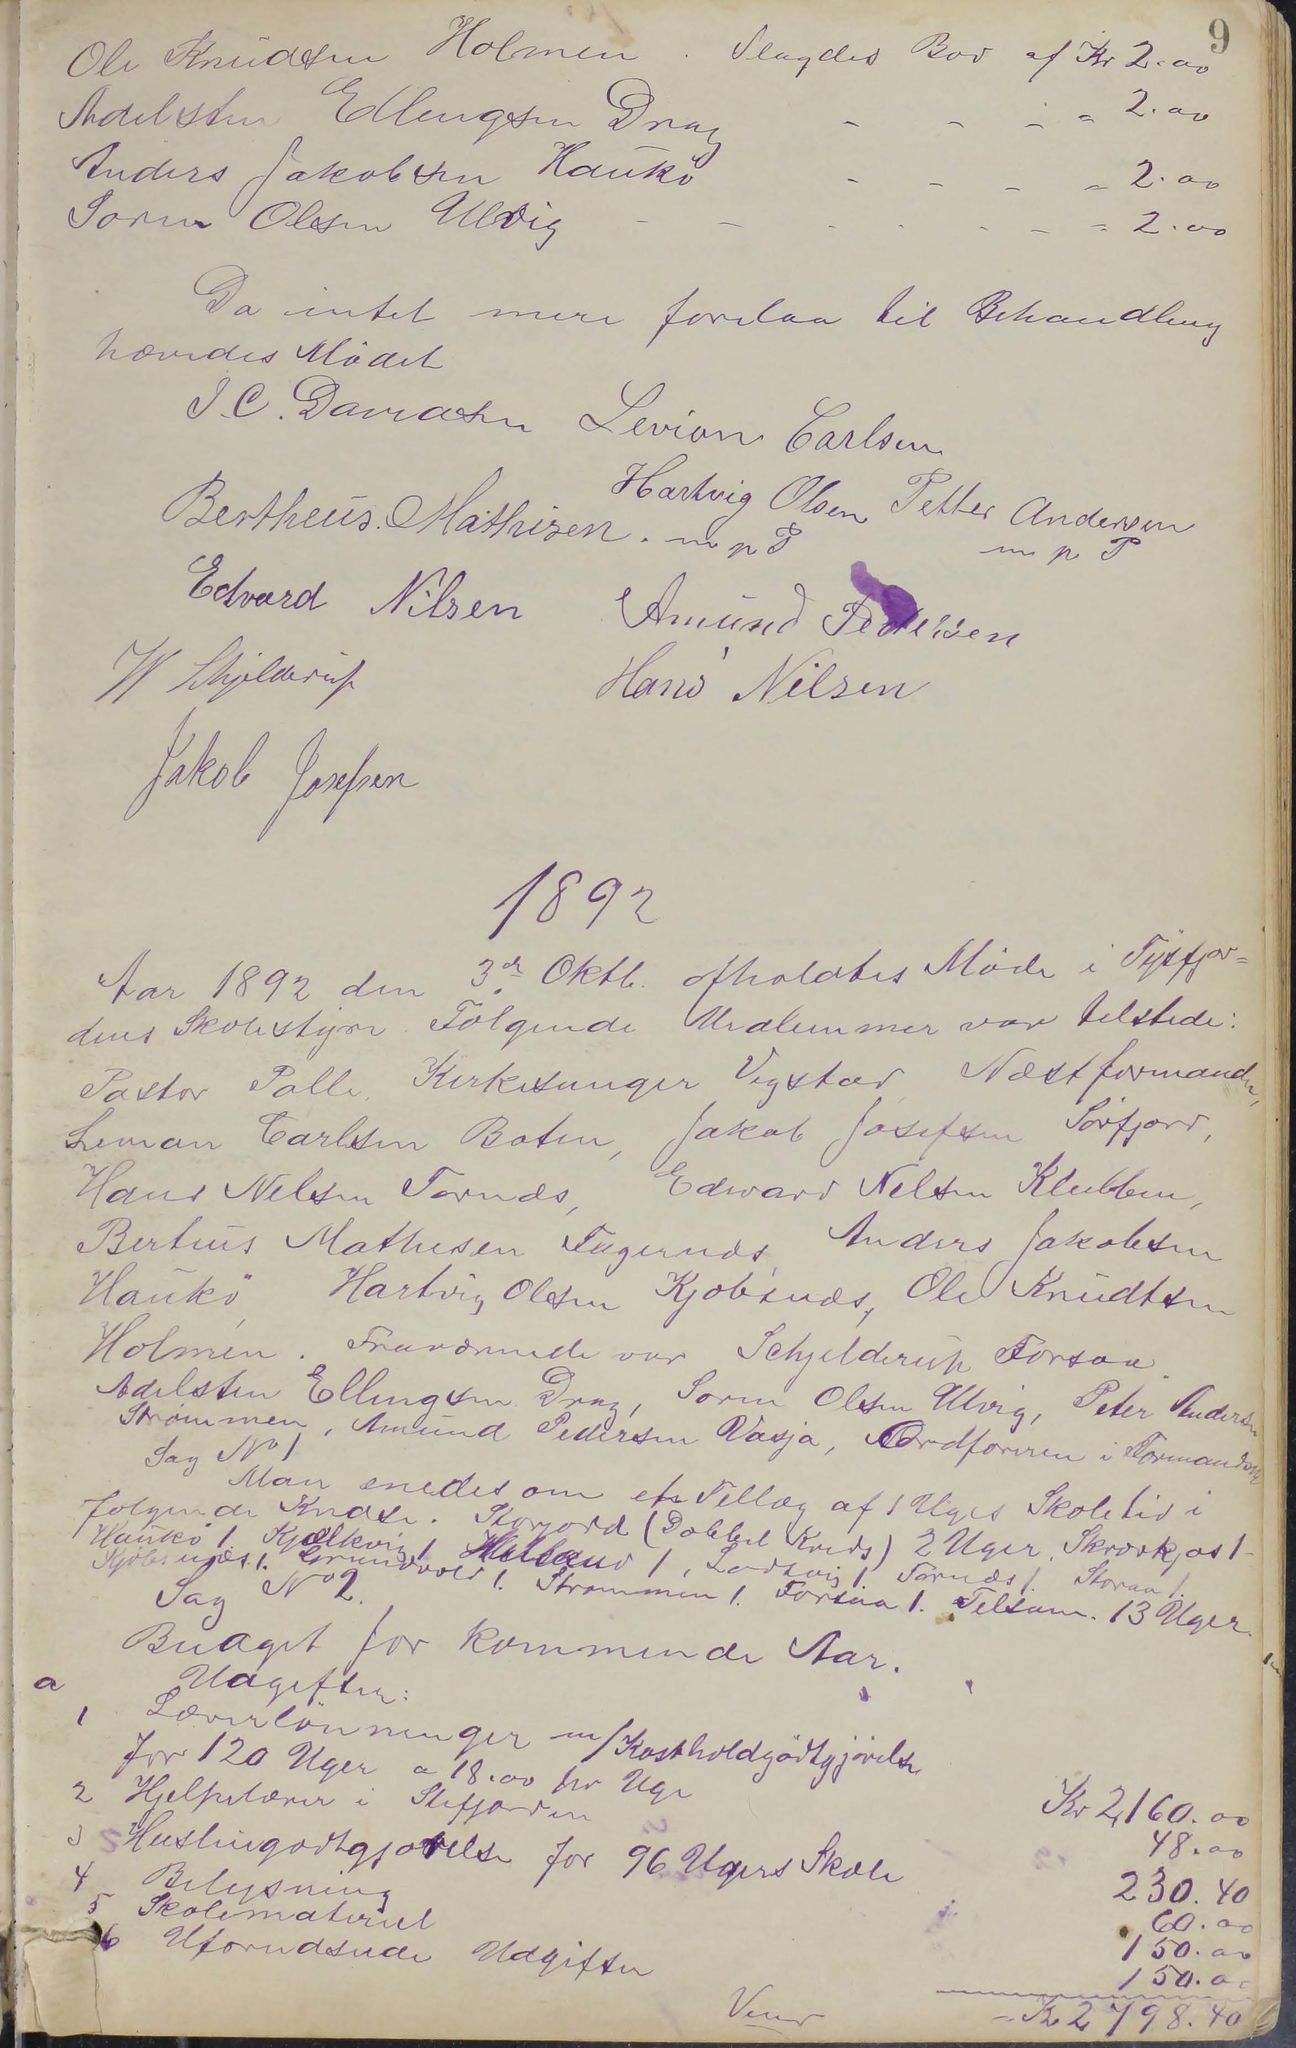 9
Ole Knudsen Holmen. Ilagdes Bod af Kr 2.00
Adelsten Ellingsen Drag - - - - 2.00
Anders Jakobsen Haukö - - - - 2.00
Soren Olsen Ulvig - - - - - - - 2.00
Da intet mere forelaa til Behandling
hævedes Mödet
J C. Davidsen Levion Carlsen
Hartvig Olsen Petter Andersen
Bertheus. Mathisen. m p P m p P
Edvard Nilsen Amund Pedersen
W Schjelderup Hans Nilsen
Jakob Josefsen
1892
Aar 1892 den 3die Oktb. afholdtes Möde i Tysfjor=
dens Skolestyre. Følgende Medlemmer var tilstede:
Pastor Palle, Kirkesanger Vigstad, Næstformanden,
Levian Carlsen Boten, Jakob Josefsen Sörfjord,
Hans Nilsen Tornæs, Edward Nilsen Klubben,
Berteus Mathisen Fagernæs, Anders Jakobsen
Haukö, Hartvig Olsen Kjöbsnæs, Ole Knudtsen
Holmen. Fraværende var Schjelderup Forsaa
Adelsten Ellingsen Drag, Soren Olsen Ulvig, Peter Andersen
Strömmen, Amund Pedersen Vasja, Ordföreren i Formandsk
Sag No 1
Man enedes om et Tillæg af 1 Uges Skoletid i
følgende Kredse. Storjord (Dobbel Kreds) 2 Uger. Skrovkjos 1-
Haukö 1. Kjælkvig 1 Helland 1, Ladtvig 1 Tornæs 1. Storaa 1.
Kjöbsnæs 1. Grundvold 1. Strømmen 1. Forsaa 1. Tilsam. 13 Uger.
Sag No 2.
Budget for kommende Aar.
a Udgifter:
1 Lærerlönninger m/Kostholdgödtgjörelse
for 120 Uger a 18.00 pr Uge Kr 2,160.00
2 Hjelpelærer i Stefjorden 48.00
3 Husleiegodtgjørelse for 96 Ugers Skole 230.40
4 Belysning 60.00
5 Skolemateriel 150.00
6 Uforudseede Udgifter 150.00
Vend - Kr 2798.40